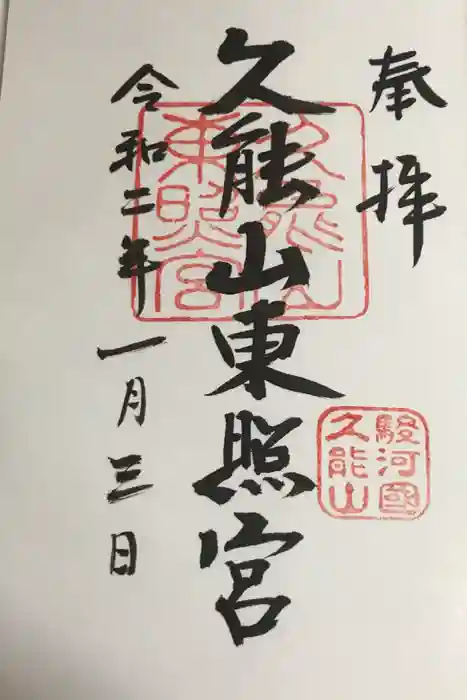 奉拝
久能山東照宮
令和二年一月三日
久能山
東照宮
駿河國
久能山